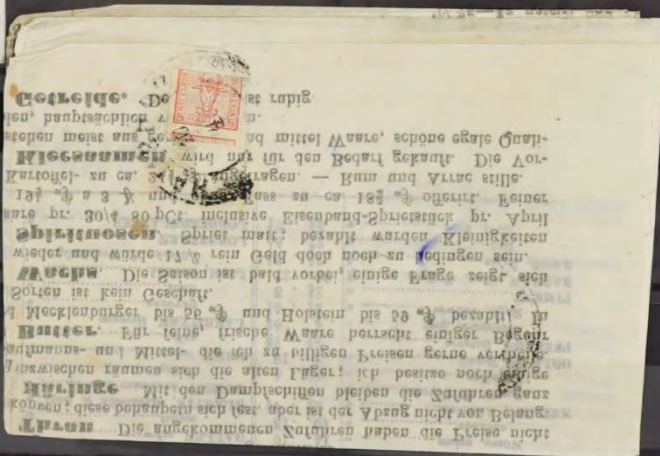 Thran. Die angekommenen Zufuhren haben die Preise nicht
können; diese behaupten sich fest, aber ist der Abzug nicht von Belang
Häringe Mit den Dampfschiffen bleiben die Zufuhren ganz
inzwischen räumen sich die alten Läger; ich besitze noch einige
aufmanns- und Mittel- die ich zu billigen Preisen gerne
Butter. Für feine, frische Waare herrscht einiger Begehr
d Mecklenburger bis 56 ₰ und Holstein bis 59 ₰ bezahlt. In
Sorten ist kein Geschäft.
Wachs. Die Saison ist bald vorbei, einige Frage zeigt sich
wieder und würde 17 ß rein Geld doch noch zu bedingen sein.
Spirituosen. Spriet matt; bezahlt wurden Kleinigkeiten
aare pr. 30/4 80 pCt. inclusive Eisenband-Sprietstück pr. April
a 3 ß und Fass zu ca 18¾ ₰ offerirt. Feiner
Kartoffel- zu ca. — Rum und Arrac stille.
Kleesaamen wird nur für den Bedarf gekauft. Die Vor-
stehen meist aus mittel Waare, schöne egale Quali-
den, hauptsächlich
Getreide. ist ruhig